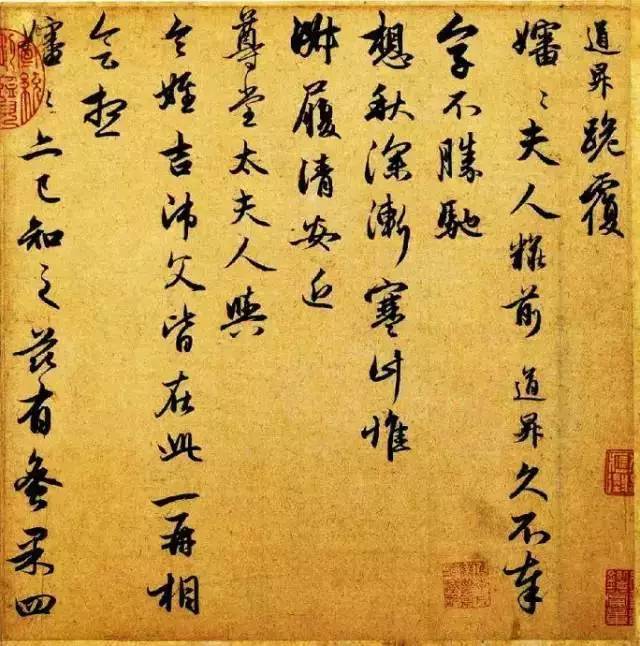 道昇跪覆
嬸〻夫人糚前道昇久不奉
字不勝馳
想秋深漸寒計惟
淑履清安近
尊堂太夫人與
令姪吉師父皆在此一再相
会想
嬸〻亦已知之兹有蜜果四